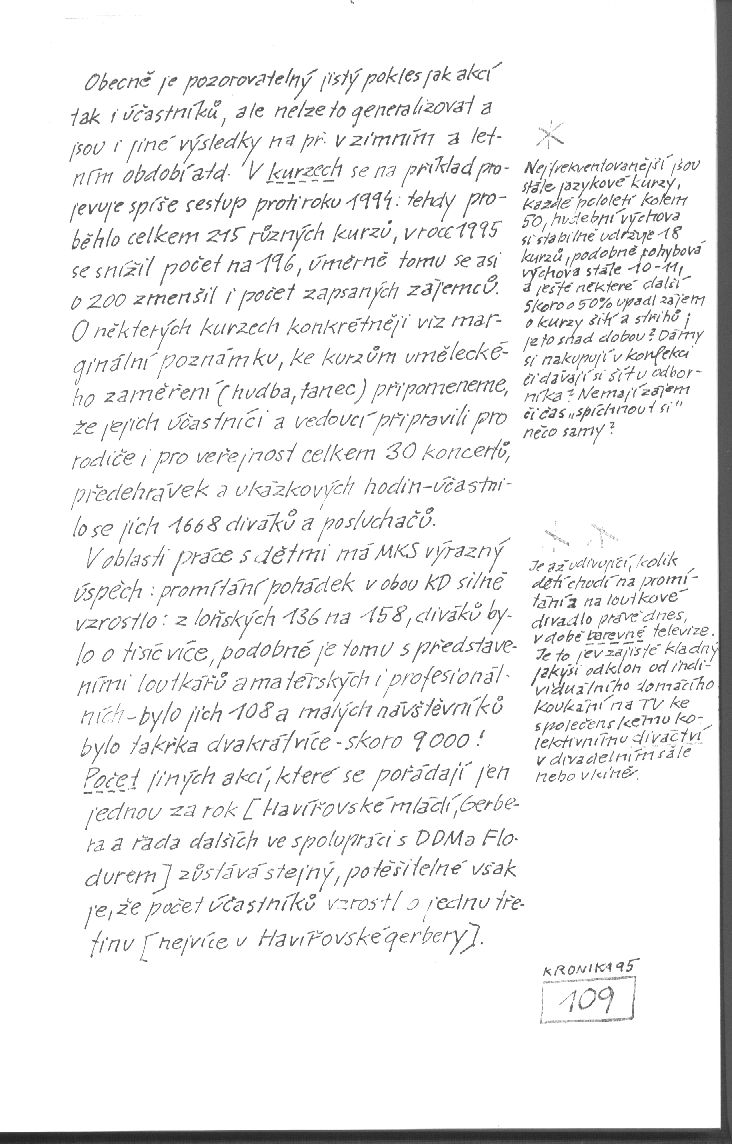 Obecně je pozorovatelný jistý pokles jak akcí
tak i účastníků, ale nelze to generalizovat a
jsou i jiné výsledky na př. v zimním a let-
ním období atd. V kurzech se na příklad pro-
jevuje spíše sestup proti roku 1994: tehdy pro-
běhlo celkem 215 různých kurzů, v roce 1995
se snížil počet na 196, úměrně tomu se asi
o 200 zmenšil i počet zapsaných zájemců.
O některých kurzech konkrétněji viz mar-
ginální poznámku, ke kurzům umělecké-
ho zaměření (hudba, tanec) připomeneme,
že jejich účastníci a vedoucí připravili pro
rodiče i pro veřejnost celkem 30 koncertů,
předehrávek a ukázkových hodin-účastni-
lo se jich 1668 diváků a posluchačů.
V oblasti práce s dětmi má MKS výrazný
úspěch: promítání pohádek v obou KD silně
vzrostlo: z loňských 136 na 158, diváků by-
lo o tisíc více, podobné je tomu s představe-
ními loutkářů amatérských i profesionál-
ních-bylo jich 108 a malých návštěvníků
bylo takřka dvakrát více-skoro 9000!
Počet jiných akcí, které se pořádají jen
jednou za rok [Havířovské mládí, Gerbe-
ra a řada dalších ve spolupráci s DDM a Flo-
durem] zůstává stejný, potěšitelné však
je, že počet účastníků vzrostl o jednu tře-
tinu [nejvíce u Havířovské gerbery].
*
Nejfrekventovanější jsou
stále jazykové kurzy,
každé pololetí kolem
50, hudební výchova
si stabilně udržuje 18
kurzů, podobně pohybová
výchova stále 10-11,
a ještě některé další
Skoro o 50% upadl zájem
o kurzy šití a střihů;
je to snad dobou? Dámy
si nakupují v konfekci
či dávají si šít u odbor-
níka? Nemají zájem
či čas „spíchnout si"
něco samy?
* *
Je až udivující, kolik
dětí chodí na promí-
tání a na loutkové
divadlo právě dnes,
v době barevné televize.
Je to jev zajisté kladný
jakýsi odklon od indi-
viduálního domácího
koukání na TV ke
společenskému ko-
lektivnímu diváctví
v divadelním sále
nebo v kině.
KRONIKA 95
109